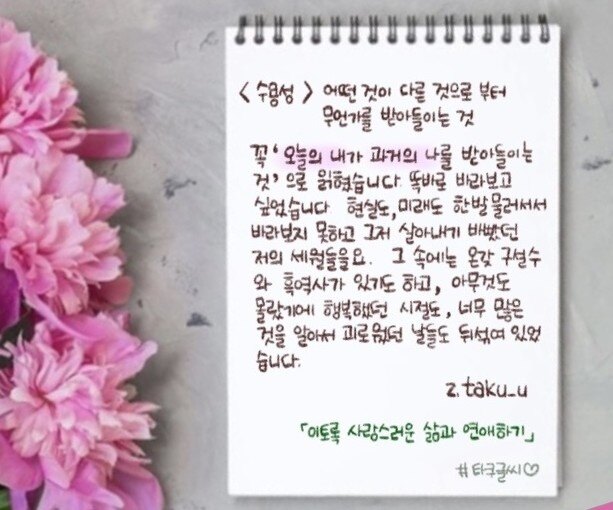 < 수용성 > 어떤 것이 다른 것으로 부터
무언가를 받아들이는 것
꼭 '오늘의 내가 과거의 나를 받아들이는
것' 으로 읽혔습니다. 똑바로 바라보고
싶었습니다 현실도, 미래도 한발 물러서서
바라보지 못하고 그저 살아내기 바빴던
저의 세월들을요. 그 속에는 온갖 구설수
와 흑역사가 있기도 하고, 아무것도
몰랐기에 행복했던 시절도, 너무 많은
것을 알아서 괴로웠던 날들도 뒤섞여 있었
습니다.
z.taku_u
「이토록 사랑스러운 삶과 연애하기」
#타쿠글씨♡